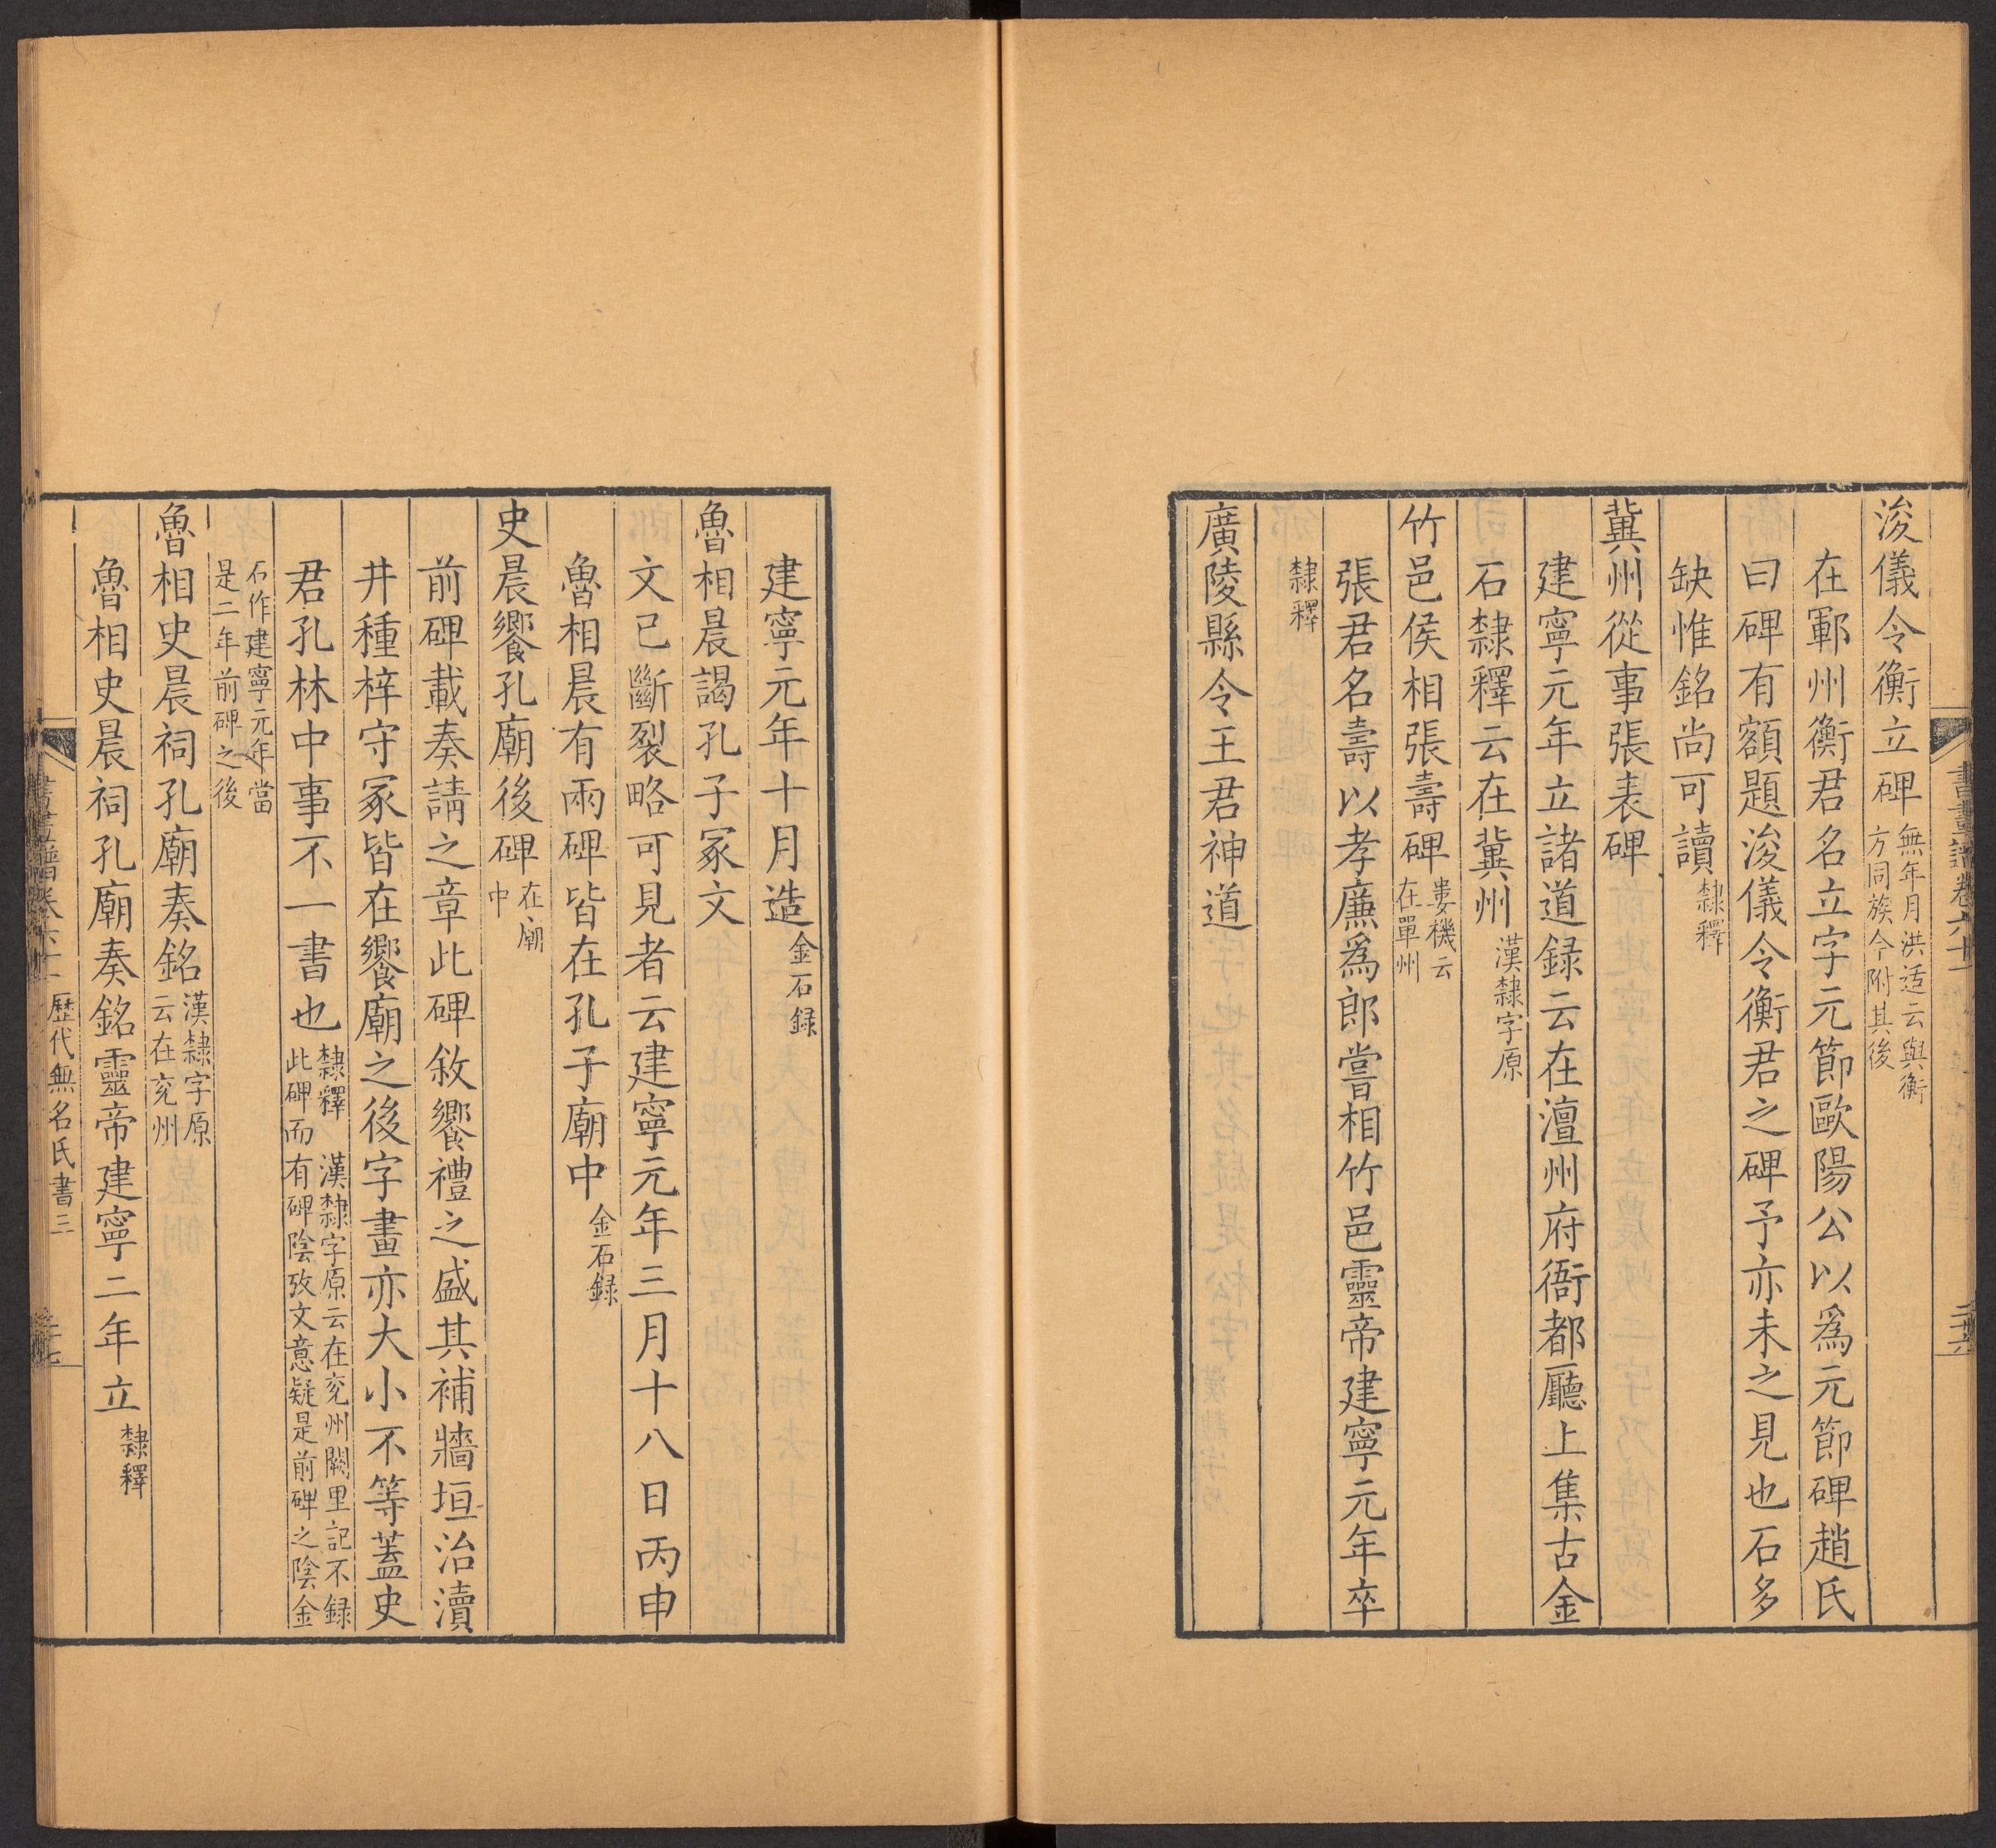 書畫譜卷六十一
二十六
浚儀令衡立碑無年月洪适云與衡方同族今附其後
在鄆州衡君名立字元節歐陽公以爲元節碑趙氏
曰碑有額題浚儀令衡君之碑予亦未之見也石多
缺惟銘尚可讀隸釋
冀州從事張表碑
建寧元年立諸道録云在澶州府衙都廳上集古金
石隸釋云在冀州漢隸字原
竹邑侯相張壽碑婁機云在單州
張君名壽以孝廉爲郎嘗相竹邑靈帝建寧元年卒
隸釋
廣陵縣令王君神道
建寧元年十月造金石録
魯相晨謁孔子冢文
文已斷裂略可見者云建寧元年三月十八日丙申
魯相晨有兩碑皆在孔子廟中金石録
史晨饗孔廟後碑在廟中
前碑載奏請之章此碑敘饗禮之盛其補牆垣治瀆
井種梓守冢皆在饗廟之後字畫亦大小不等蓋史
君孔林中事不一書也隸釋 漢隸字原云在兖州闕里記不録此碑而有碑陰攷文意疑是前碑之陰金
石作建寧元年當是二年前碑之後
魯相史晨祠孔廟奏銘漢隸字原云在兖州
魯相史晨祠孔廟奏銘靈帝建寧二年立隸釋
書畫譜卷六十一 歷代無名氏書三 二十七